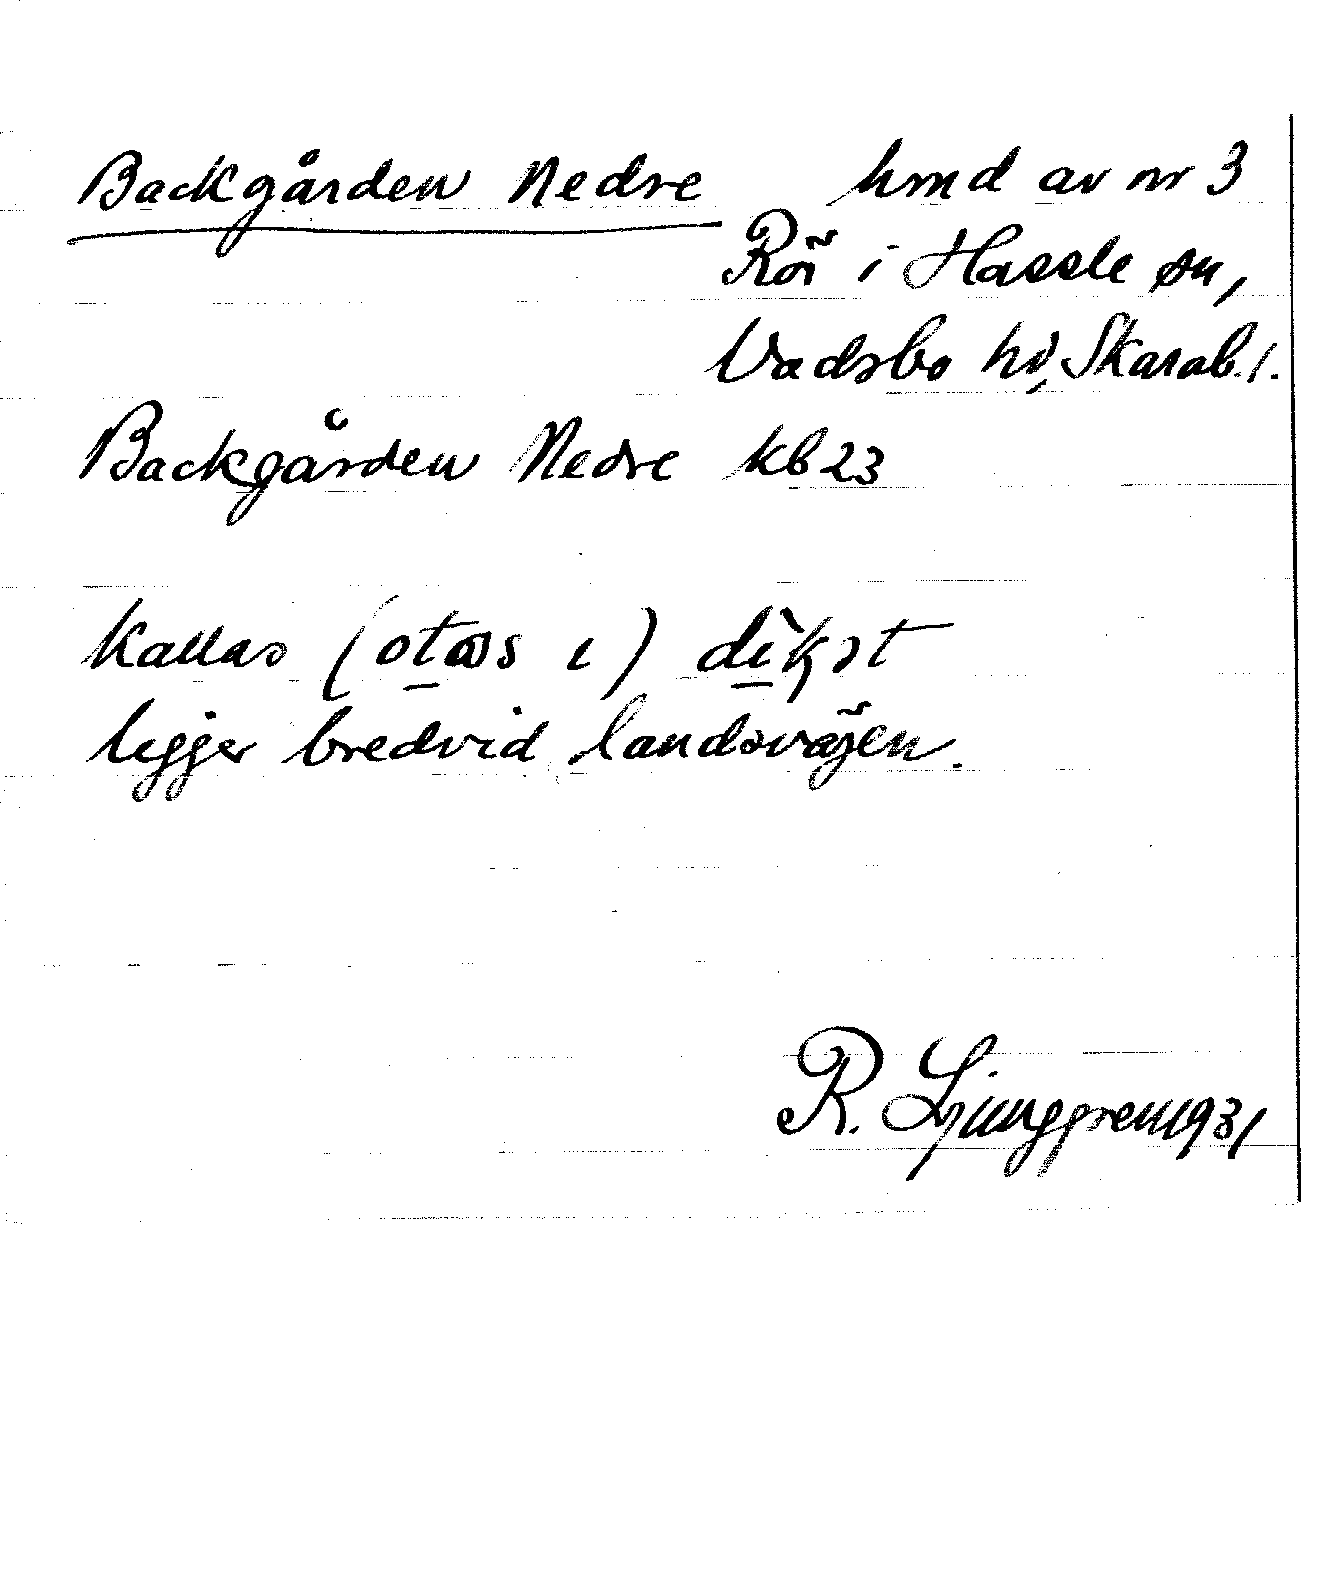 Backgården Nedre hmd av nr 3
Rör i Hassle sn,
Vadsbo hd, Skarab. l.
Backgården Nedre kb 23
kallas ( ) 
ligger bredvid landsvägen.
R. Ljunggren 1931